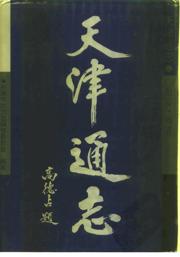 天津通志
高德占题